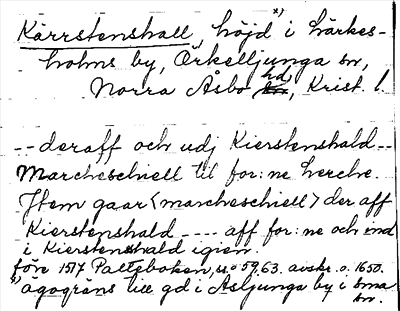 Kärrstenshall, höjd i Lärkes-
holms by, Örkelljunga sn,
Norra Åsbo hd, Krist. l.
-- deraff och udj Kierstenshald --
Marcheschiell til for:ne herche.
Item gaar <marcheschiell> der aff
Kierstenshald ---- aff for:ne och ind
i Kierstenshald igien.
före 1517 Palteboken, s. 59, 63. avskr. o. 1650.
x) ägogräns till gd i Åsljunga by i sma
sn.